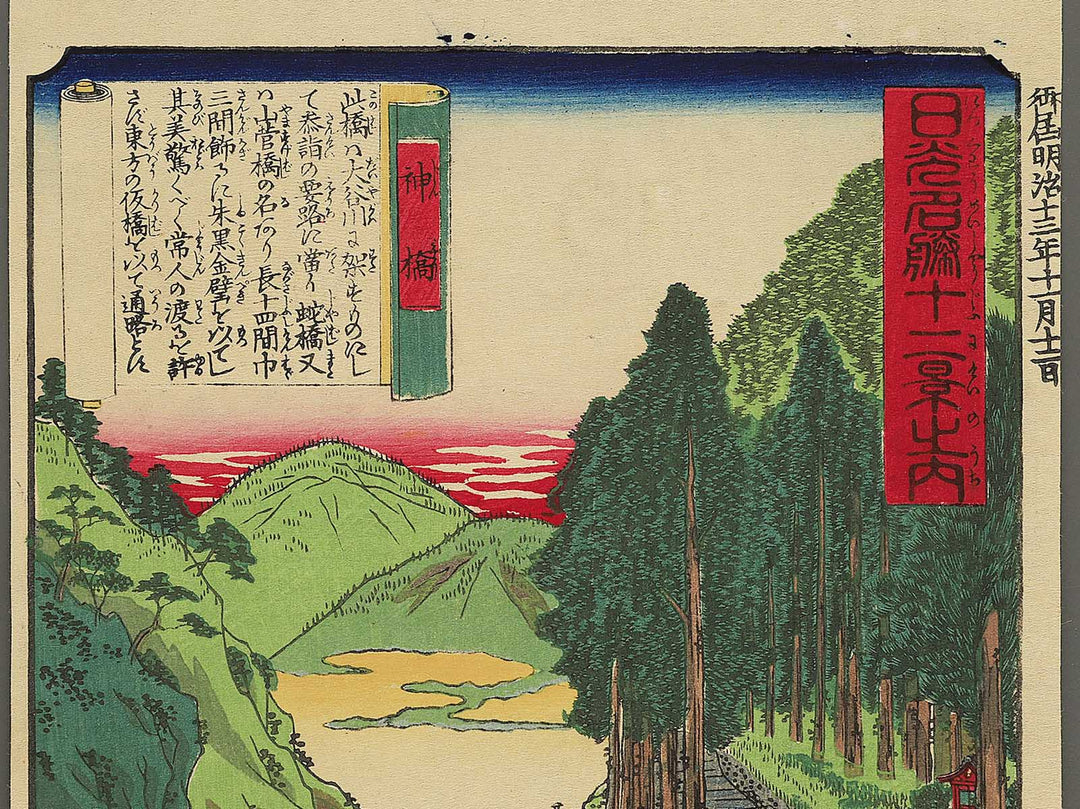 御届明治十三年十一月十二日
日光名勝十二景之内
神橋
此橋ハ大谷川に架するものにし
て参詣の要路に當り蛇橋又
ハ山菅橋の名あり長十四間巾
三間飾るに朱黒金璧を以てし
其美驚くべく常人の渡るを許
さず東方の仮橋を以て通路とす